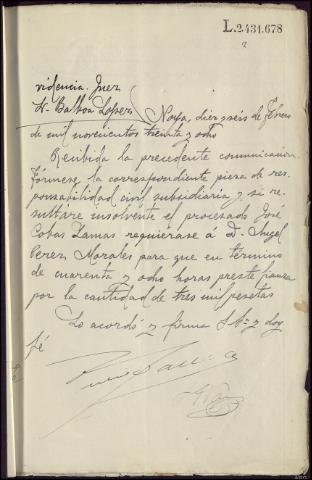 L.2431.678
2
videncia Juez
Sr. Balboa López
Noya, diez y séis de Febrero
de mil novecientos treinta y ocho
Recibida la precedente comunicación
fórmese la correspondiente pieza de res-
ponsabilidad civil subsidiaria y si re-
sultare insolvente el procesado José
Cobas Lamas requiérase á D. Angel
Perez Morales para que en término
de cuarenta y ocho horas preste fianza
por la cantidad de tres mil pesetas
Lo acordó y firma S Sª y doy
fé